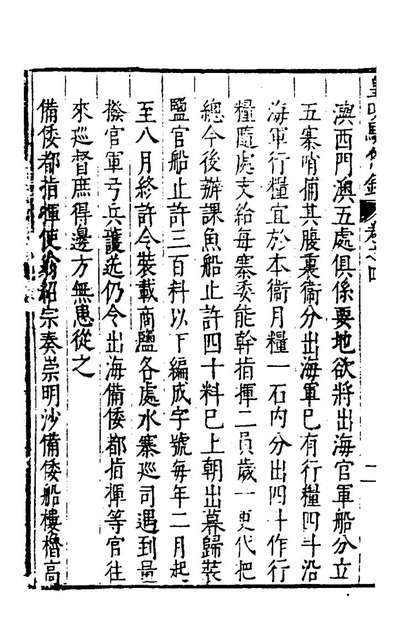 皇明馭倭錄 卷之四 二
澳西門澳五處俱係要地欲將出海官軍船分立
五寨哨備其腹裏衛分出海軍已有行糧四斗沿
海軍行糧宜於本衛月糧一石內分出四斗作行
糧隨處支給每寨委能幹指揮二員歲一更代把
總今後辦課魚船止許四十料已上朝出暮歸裝
鹽官船止許三百料以下編成字號每年二月起
至八月終許令裝載商鹽各處水寨巡司遇到量
撥官軍弓兵護送仍令出海備倭都指揮等官往
來巡督庶得邊方無患從之
備倭都指揮使翁紹宗奏崇明沙備倭船樓櫓高